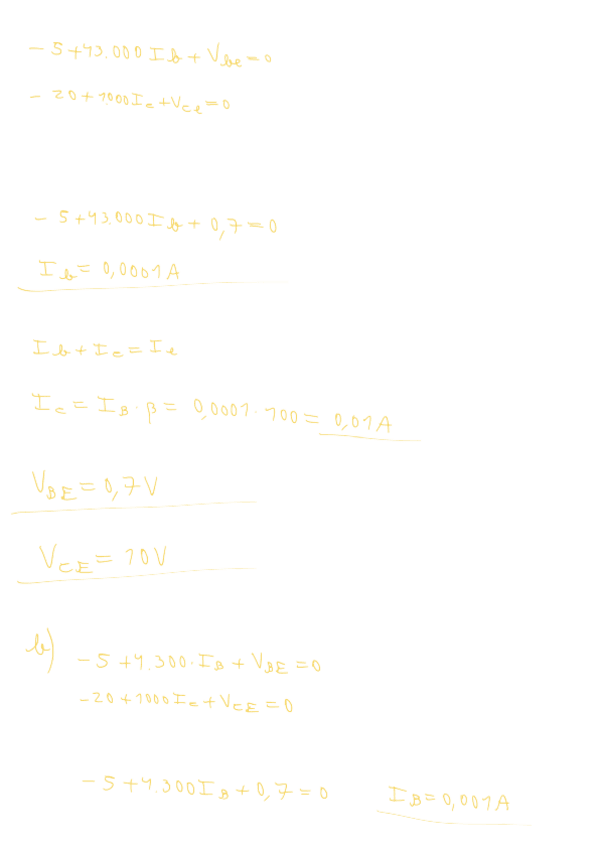 - 5 + 43.000 I b + Vbe = 0
- 20 + 1000 Ic + Vce = 0
- 5 + 43.000 I b + 0,7 = 0
I b = 0,0001 A
I b + I c = I e
Ic = IB · β = 0,0001 · 100 = 0,01 A
VBE = 0,7 V
VCE = 10 V
b) - 5 + 4.300 · IB + VBE = 0
- 20 + 1000 Ic + VCE = 0
- 5 + 4.300 IB + 0,7 = 0 IB = 0,001 A